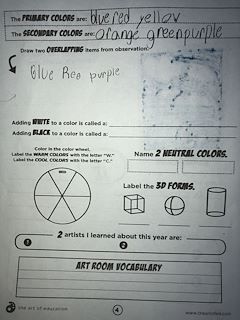 The PRIMARY COLORS are: blue red yellow
The SECONDARY COLORS are: orange green purple
Draw two OVERLAPPING items from observation.
Blue Red purple
Adding WHITE to a color is called a:
Adding BLACK to a color is called a:
Color in the color wheel.
Label the WARM COLORS with the letter "W."
Label the COOL COLORS with the letter "C."
Name 2 NEUTRAL COLORS.
RED
Label the 3D FORMS.
2 artists I learned about this year are:
1 2
ART ROOM VOCABULARY
the art of education
4